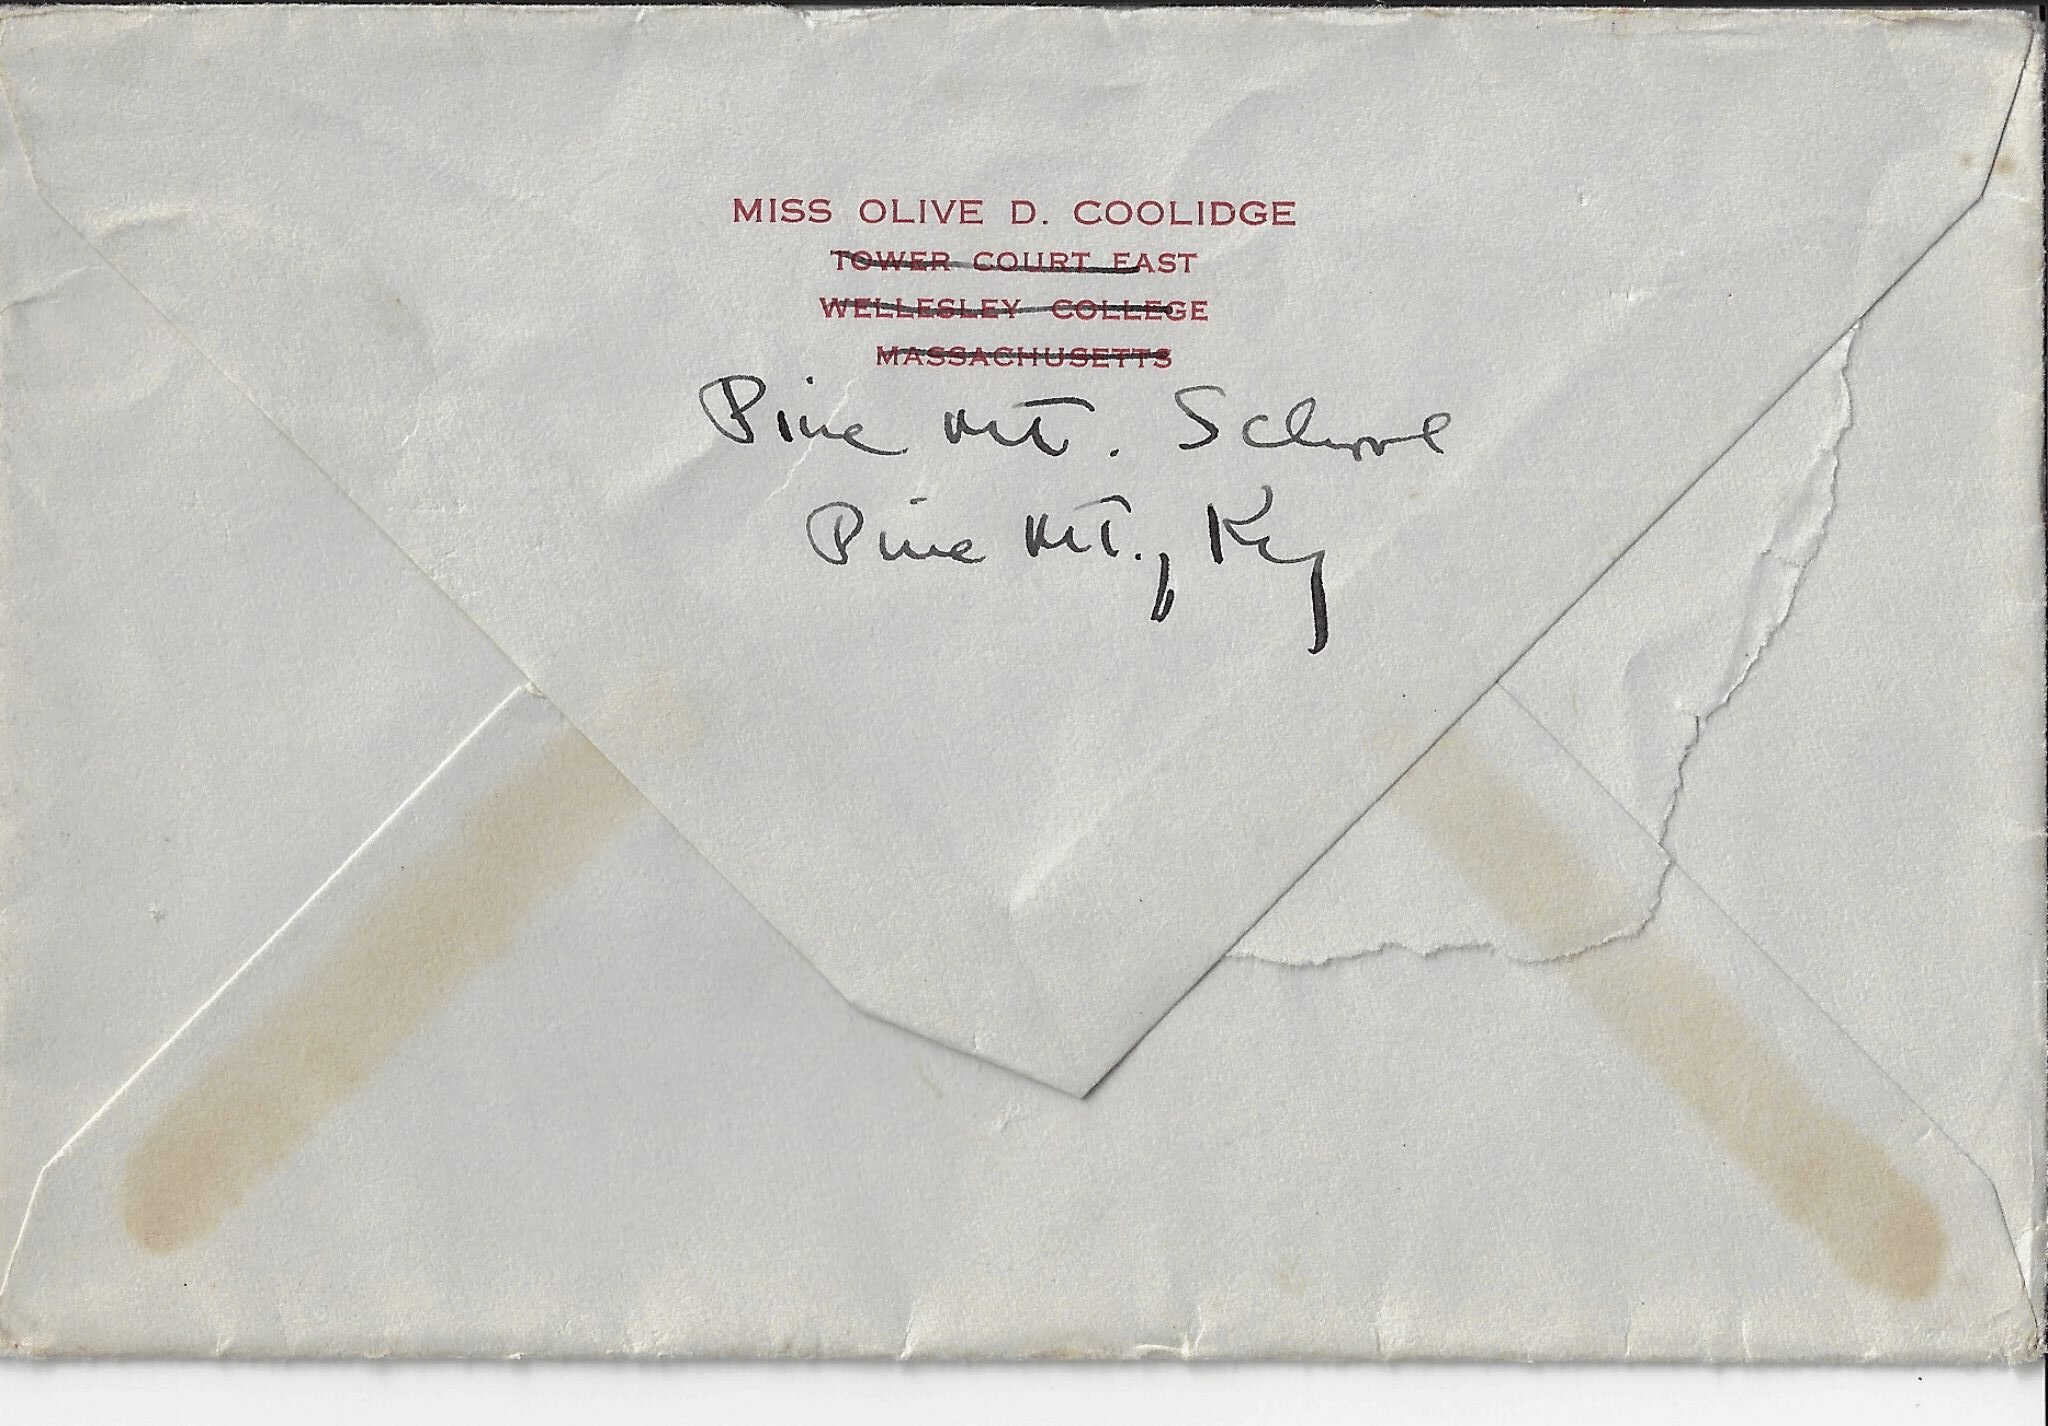 MISS OLIVE D. COOLIDGE
TOWER COURT EAST
WELLESLEY COLLEGE
MASSACHUSETTS
Pine Mt. School
Pine Mt., Ky